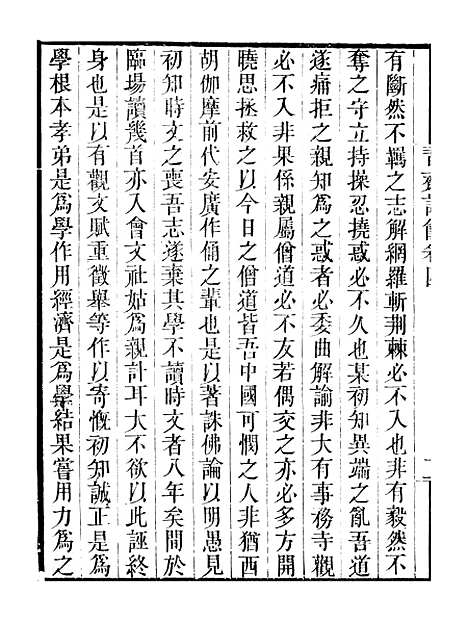 有斷然不羈之志解網羅斬荆棘必不入也非有毅然不
奪之守立持操忍撓惑必不久也某初知異端之亂吾道
遂痛拒之親知為之惑者必委曲解諭非大有事務寺觀
必不入非果係親屬僧道必不友若偶交之亦必多方開
曉思拯救之以今日之僧道皆吾中國可憫之人非猶西
胡伽摩前代安廣作俑之輩也是以著誅佛論以明愚見
初知時文之喪吾志遂棄其學不讀時文者八年矣間於
臨場讀幾首亦入會文社姑為親計耳大不欲以此誣終
身也是以有觀文賦重徵舉等作以寄慨初知誠正是為
學根本孝弟是為學作用經濟是為學結果嘗用力為之